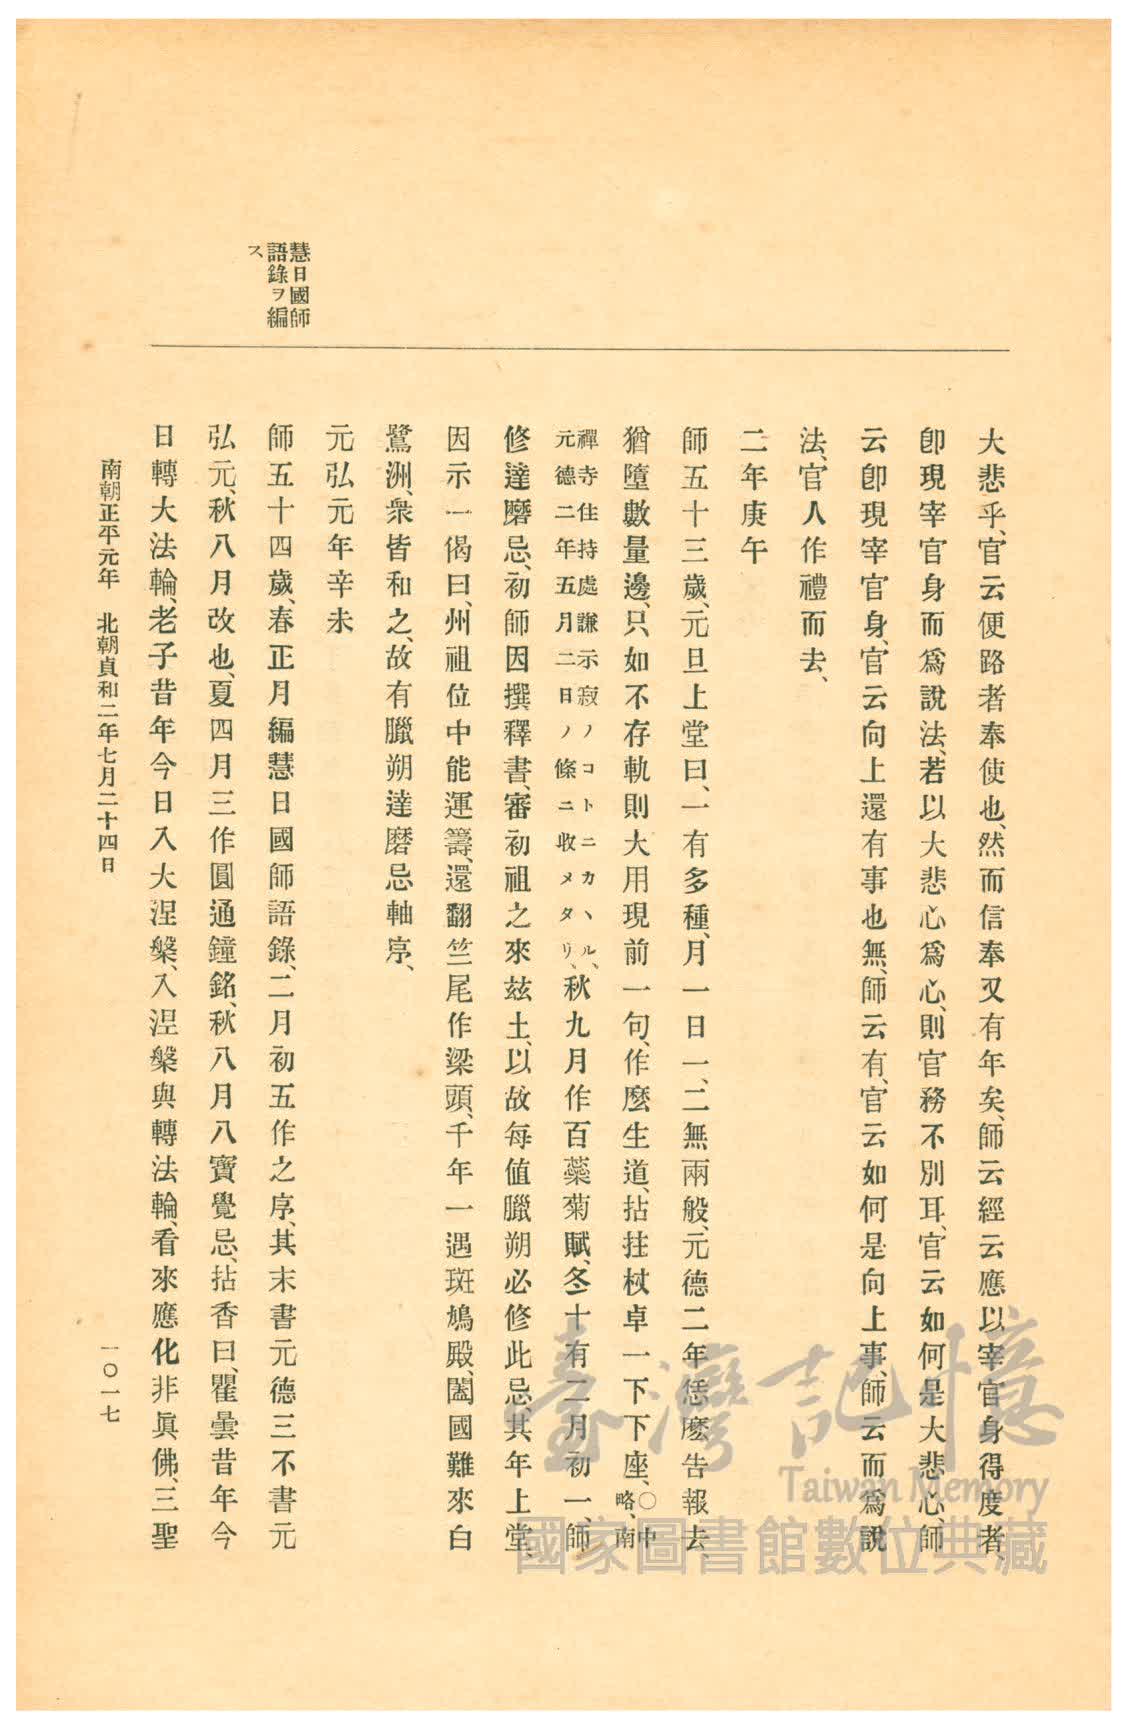 慧日國師
語錄ヲ編
ス、
大悲乎、官云便路者奉使也、然而信奉又有年矣、師云經云應以宰官身得度者、
卽現宰官身而爲說法、若以大悲心爲心、則官務不別耳、官云如何是大悲心、師
云卽現宰官身、官云向上還有事也無、師云有、官云如何是向上事、師云而爲說
法、官人作禮而去、
二年庚午
師五十三歲、元旦上堂曰、一有多種、月一日一、二無兩般、元德二年恁麽告報去、
猶墮數量邊、只如不存軌則大用現前一句、作麽生道、拈拄杖卓一下下座、〇中略、南
禪寺住持處謙示寂ノコトニカヽル、元德二年五月二日ノ條ニ收メタリ、秋九月作百藥菊賦、冬十有二月初一、師
修達磨忌、初師因撰釋書、審初祖之來玆土、以故每値臘朔必修此忌、其年上堂、
因示一偈曰、州祖位中能運籌、還翻竺尾作梁頭、千年一遇斑鳩殿、闔國難來白
鷺洲、衆皆和之、故有臘朔達磨忌軸序、
元弘元年辛未
師五十四歲、春正月編慧日國師語錄、二月初五作之序、其末書元德三不書元
弘元、秋八月改也、夏四月三作圓通鐘銘、秋八月八寶覺忌、拈香曰、瞿曇昔年今
日轉大法輪、老子昔年今日入大涅槃、入涅槃與轉法輪、看來應化非眞佛、三聖
南朝正平元年 北朝貞和二年七月二十四日
一〇一七
臺灣記憶
Taiwan Memory
國家圖書館數位典藏